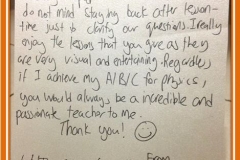 do not mind staying back after lesson-
time just to clarify our questions. I really
enjoy the lessons that you give as they
are very visual and entertaining. Regardless
if I achieve my A/B/C for physics,
you would always be a incredible and
passionate teacher to me.
Thank you!
From